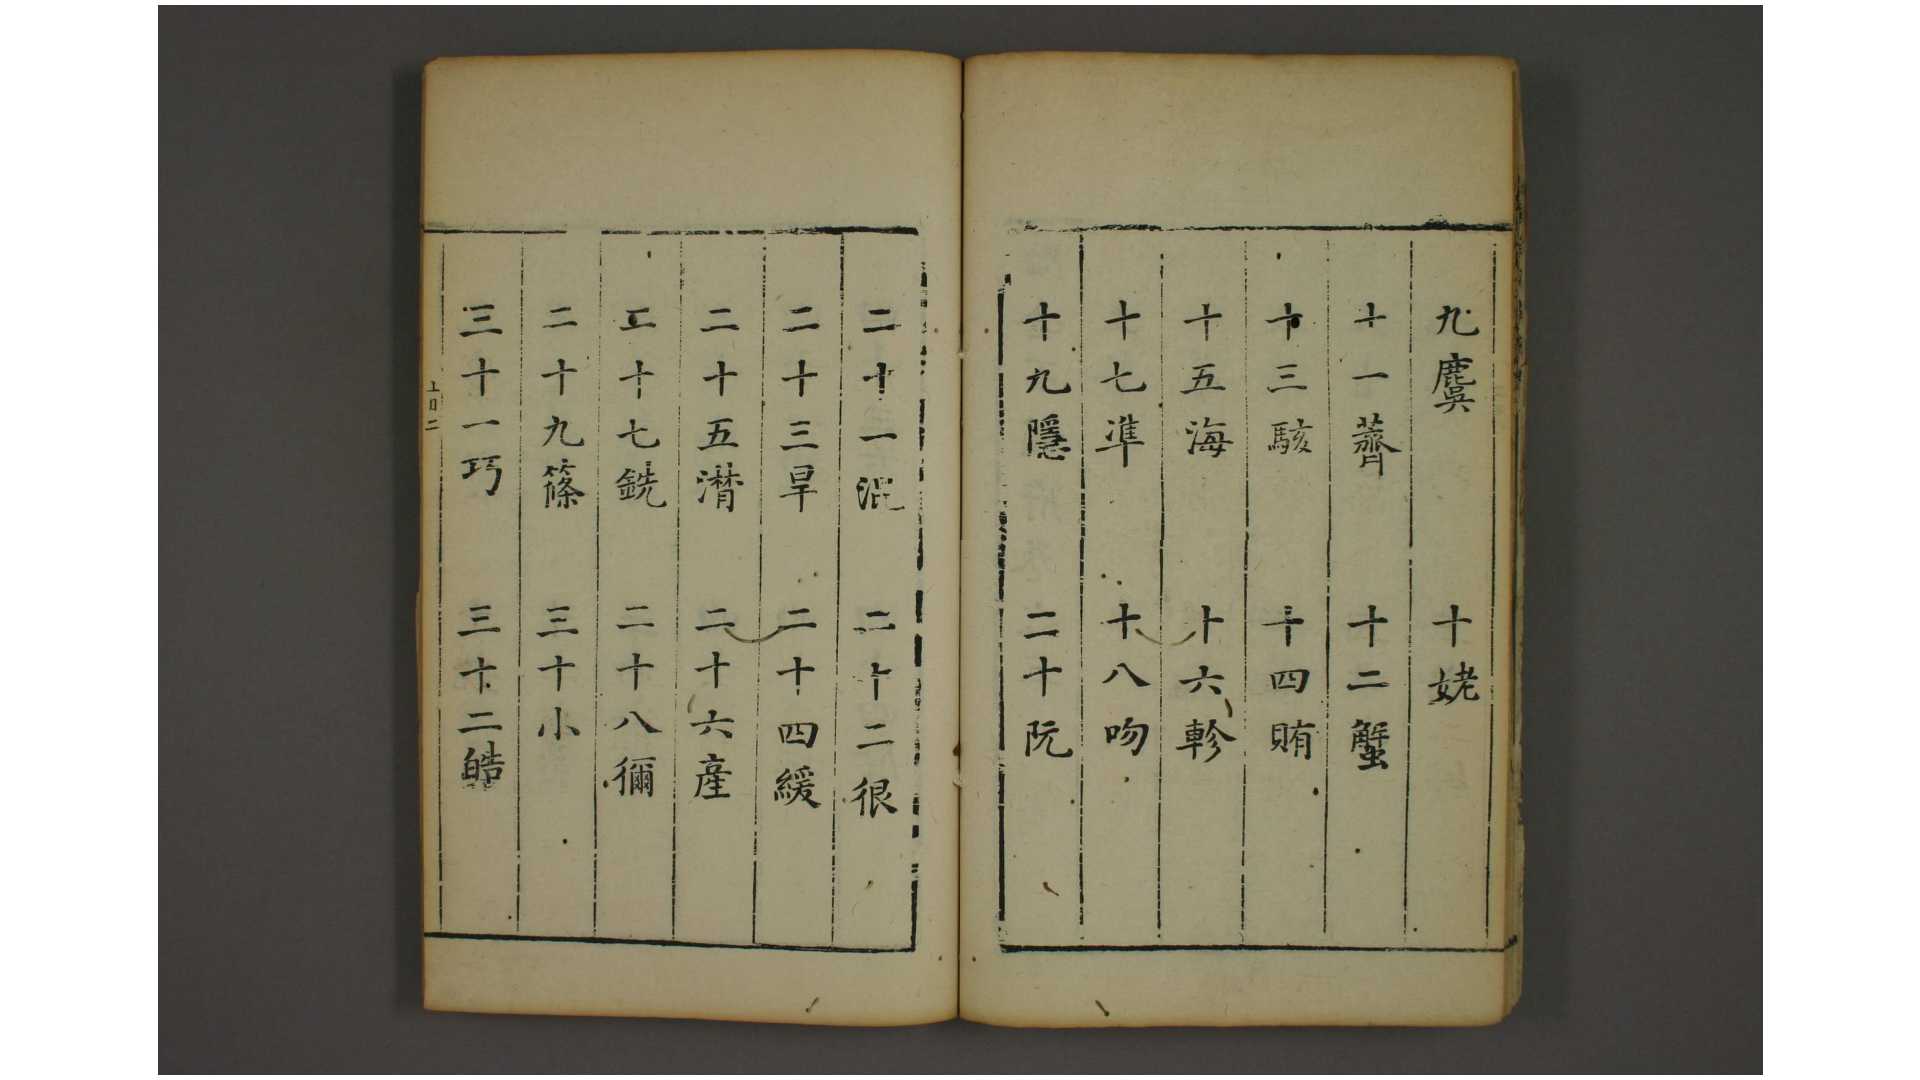 九麌　十姥
十一薺　十二蟹
十三駭　十四賄
十五海　十六軫
十七準　十八吻
十九隱　二十阮
二十一混　二十二很
二十三旱　二十四緩
二十五潸　二十六產
二十七銑　二十八獮
二十九篠　三十小
三十一巧　三十二皓